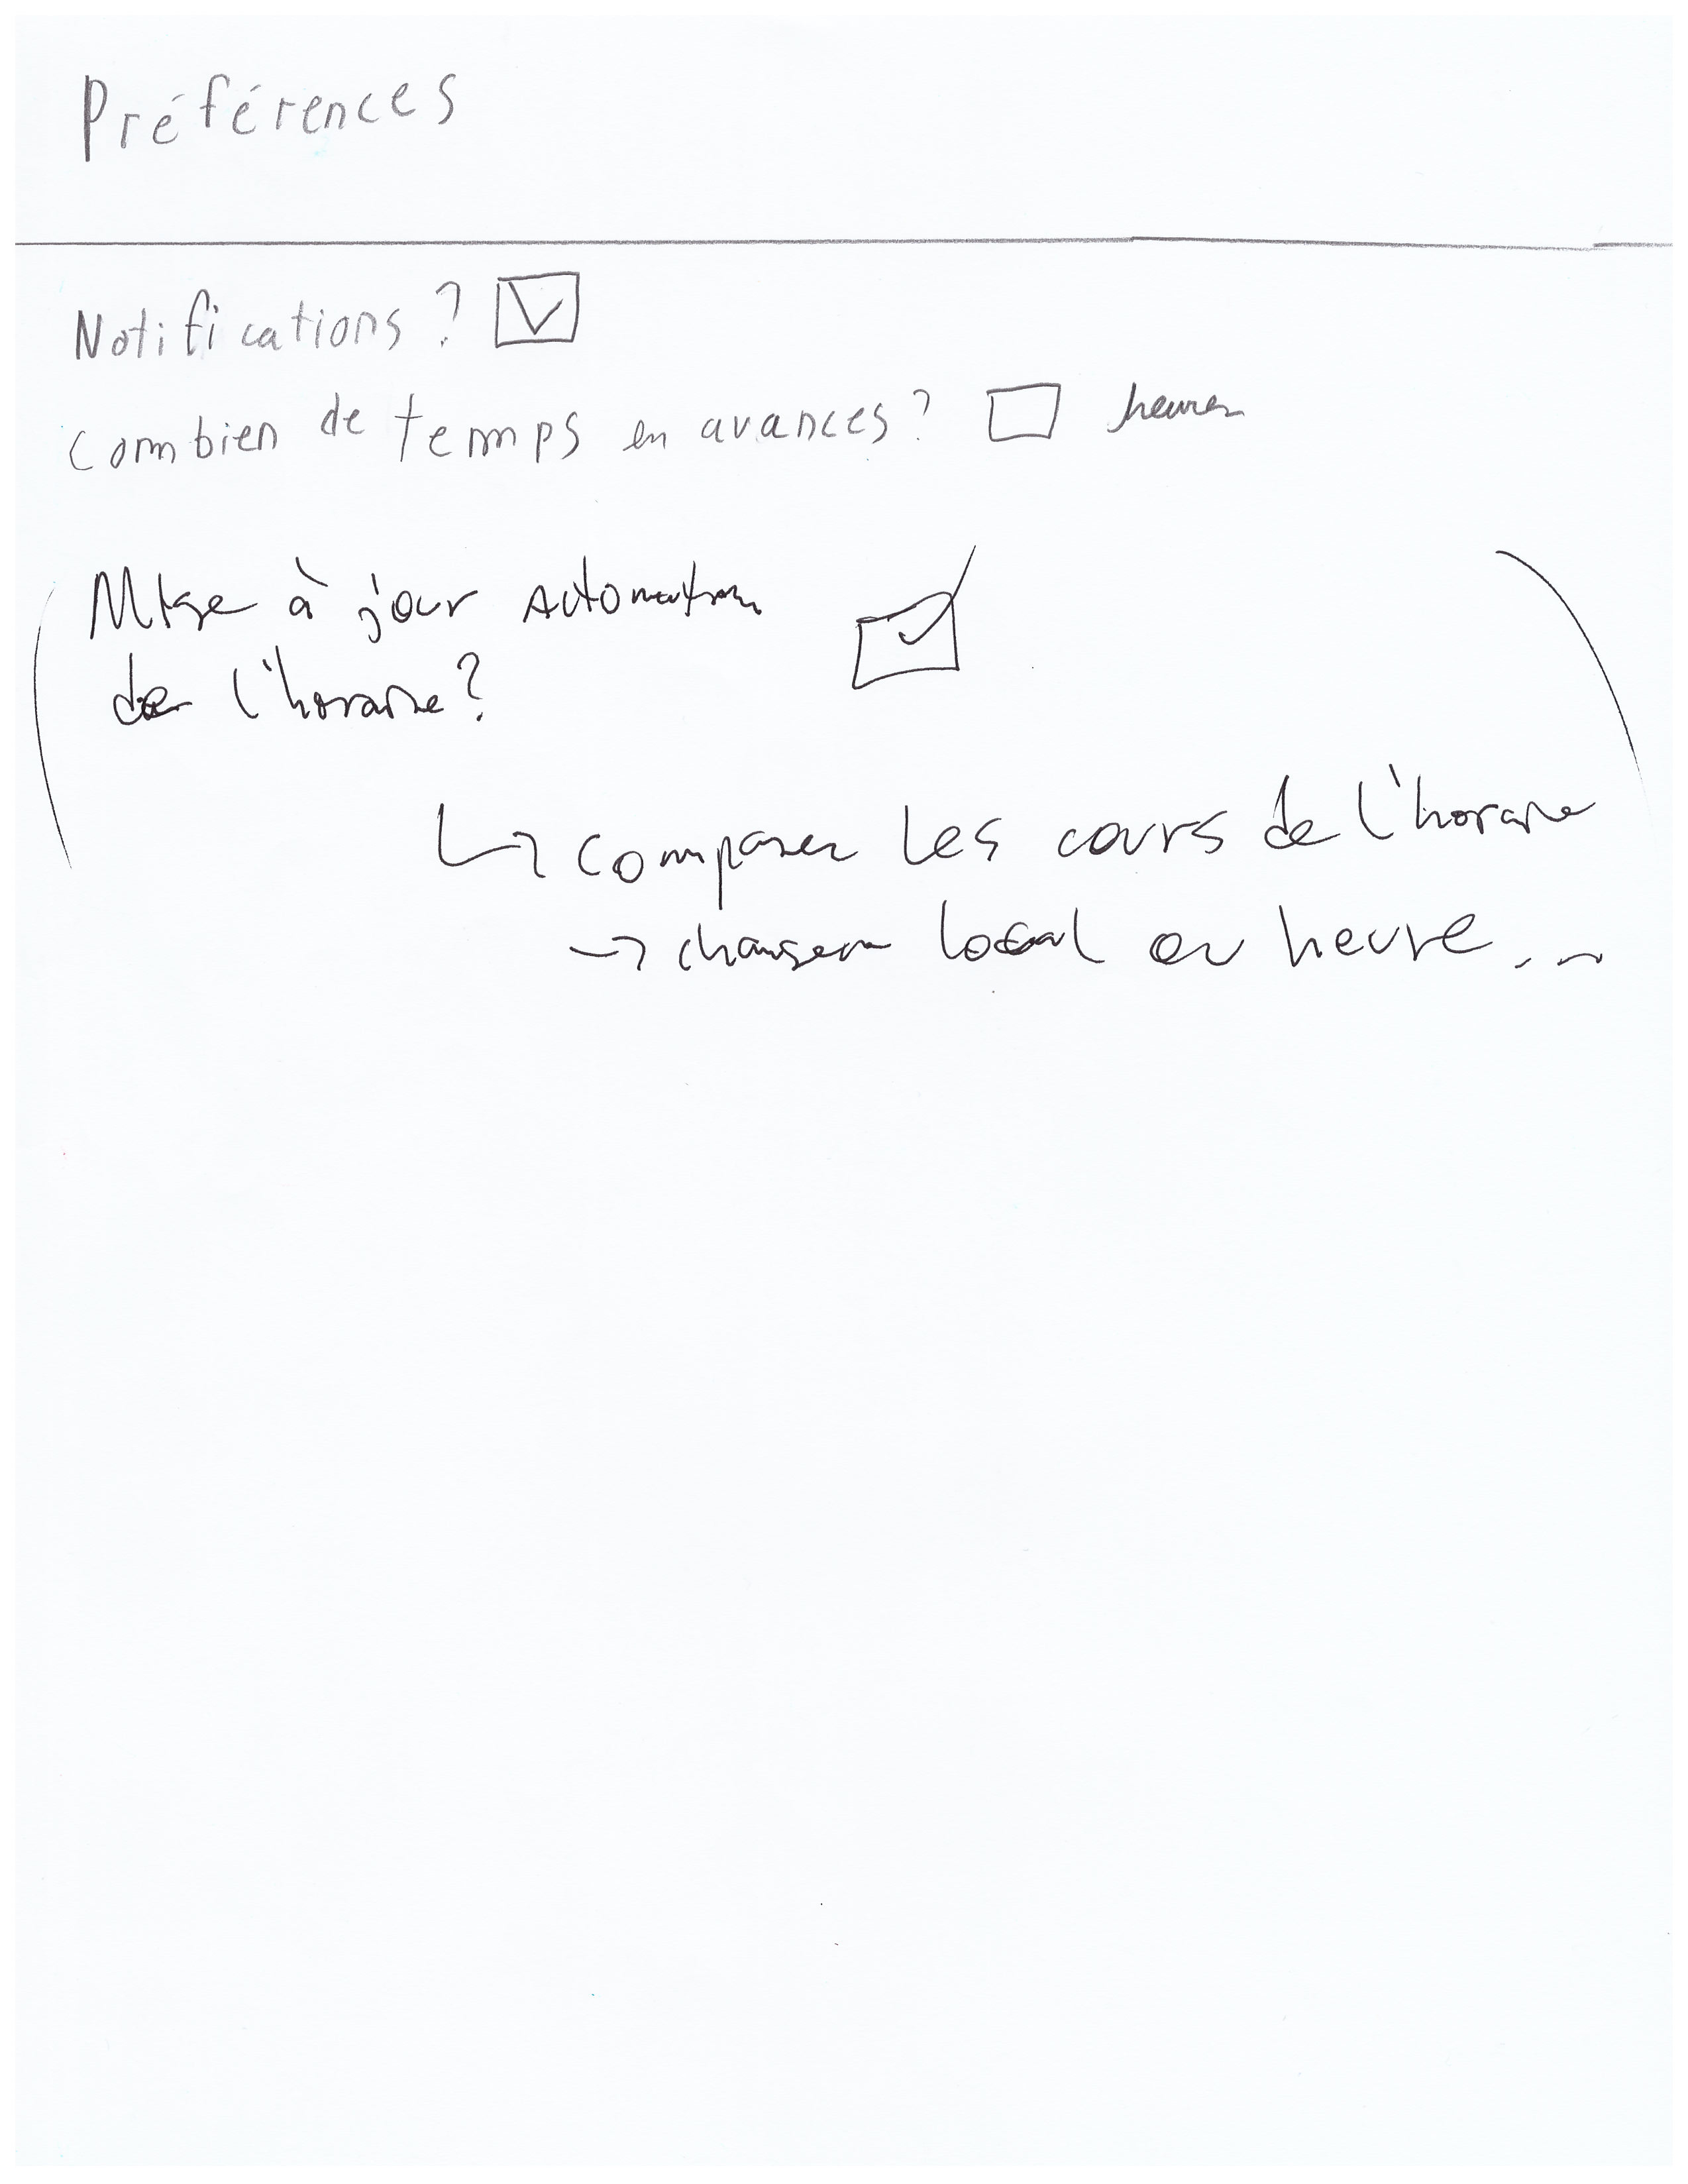 Préférences
Notifications ? ☑
combien de temps en avances ? ☐ heures
(Mise à jour automatique ☑
de l'horaire ?
↳ comparer les cours de l'horaire
→ changer local ou heure...)